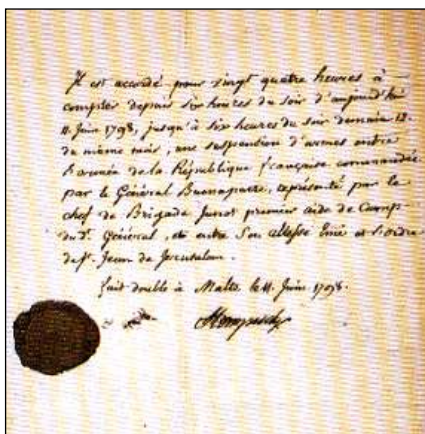 Il est accordé pour vingt quatre heures à
compter depuis six heures du soir d'aujourd'hui
11. Juin 1798, jusqu'à six heures du soir demain 12.
du même mois, une suspension d'armes entre
l'armée de la République française commandée
par le Général Buonaparte, représenté par le
chef de Brigade Junot premier aide de Camp
du dt. Général, et entre Son altesse Eme et l'ordre
de St. Jean de Jerusalem.
fait double à Malte le 11. Juin 1798.
Hompesch